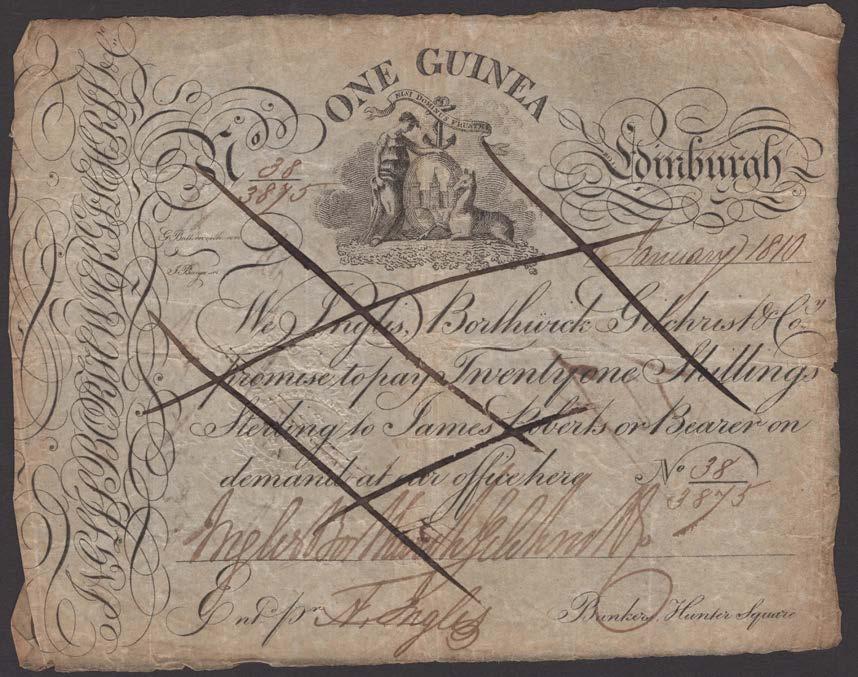 INGLIS BORTHWICK GILCHRIST & Co.
ONE GUINEA
NISI DOMINUS FRUSTRA
No. 38/3875
Edinburgh
January 1810
We Inglis, Borthwick Gilchrist & Co.
Promise to pay Twenty one Shillings
Sterling to James Roberts or Bearer on
demand at our office here No 38/3875
Inglis Borthwick Gilchrist & Co
Entd. pr. A. Inglis
Bankers, Hunter Square